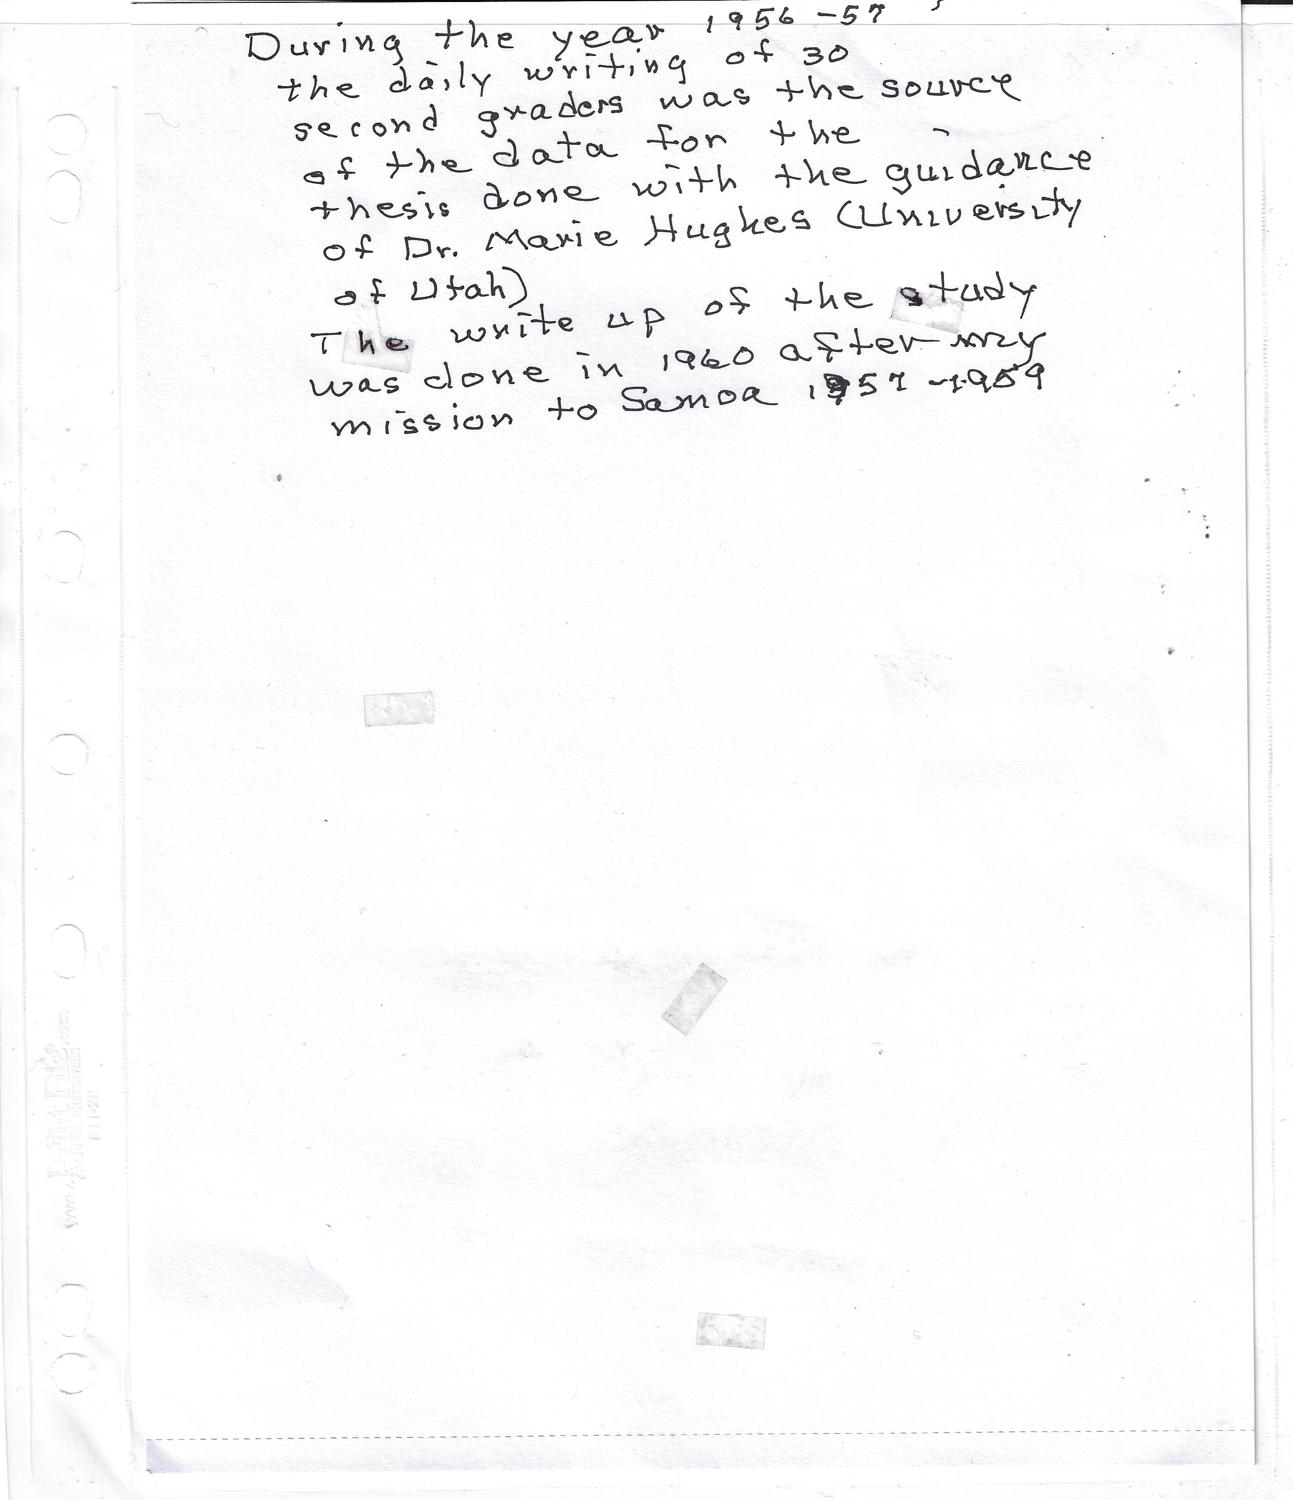 During the year 1956-57
the daily writing of 30
second graders was the source
of the data for the
thesis done with the guidance
of Dr. Marie Hughes (University
of Utah)
The write up of the study
was done in 1960 after my
mission to Samoa 1957-1959